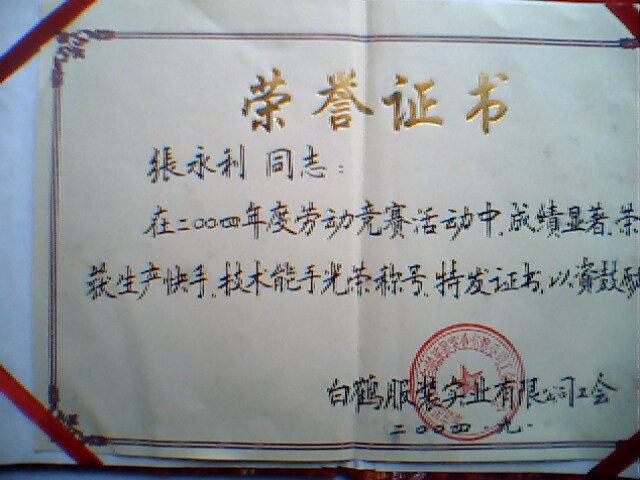 荣誉证书
張永利 同志:
在二〇〇四年度劳动竞赛活动中,成绩显著,荣
获生产快手、技术能手光荣称号,特发证书,以资鼓励
白鹤服装实业有限公司工会
二〇〇四.九.